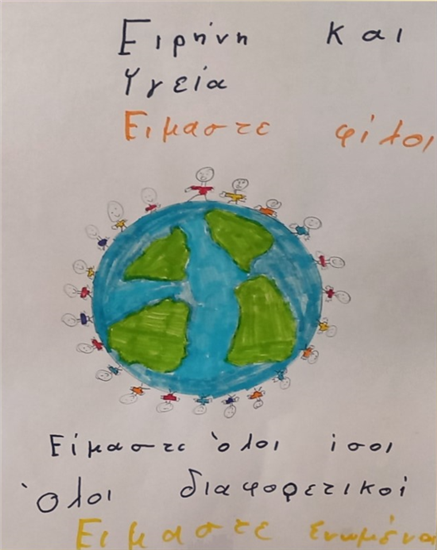 Ειρήνη και
Υγεία
Ειμαστε φίλοι
Είμαστε όλοι ισοι
Όλοι διαφορετικοί
Ειμαστε ενωμένοι